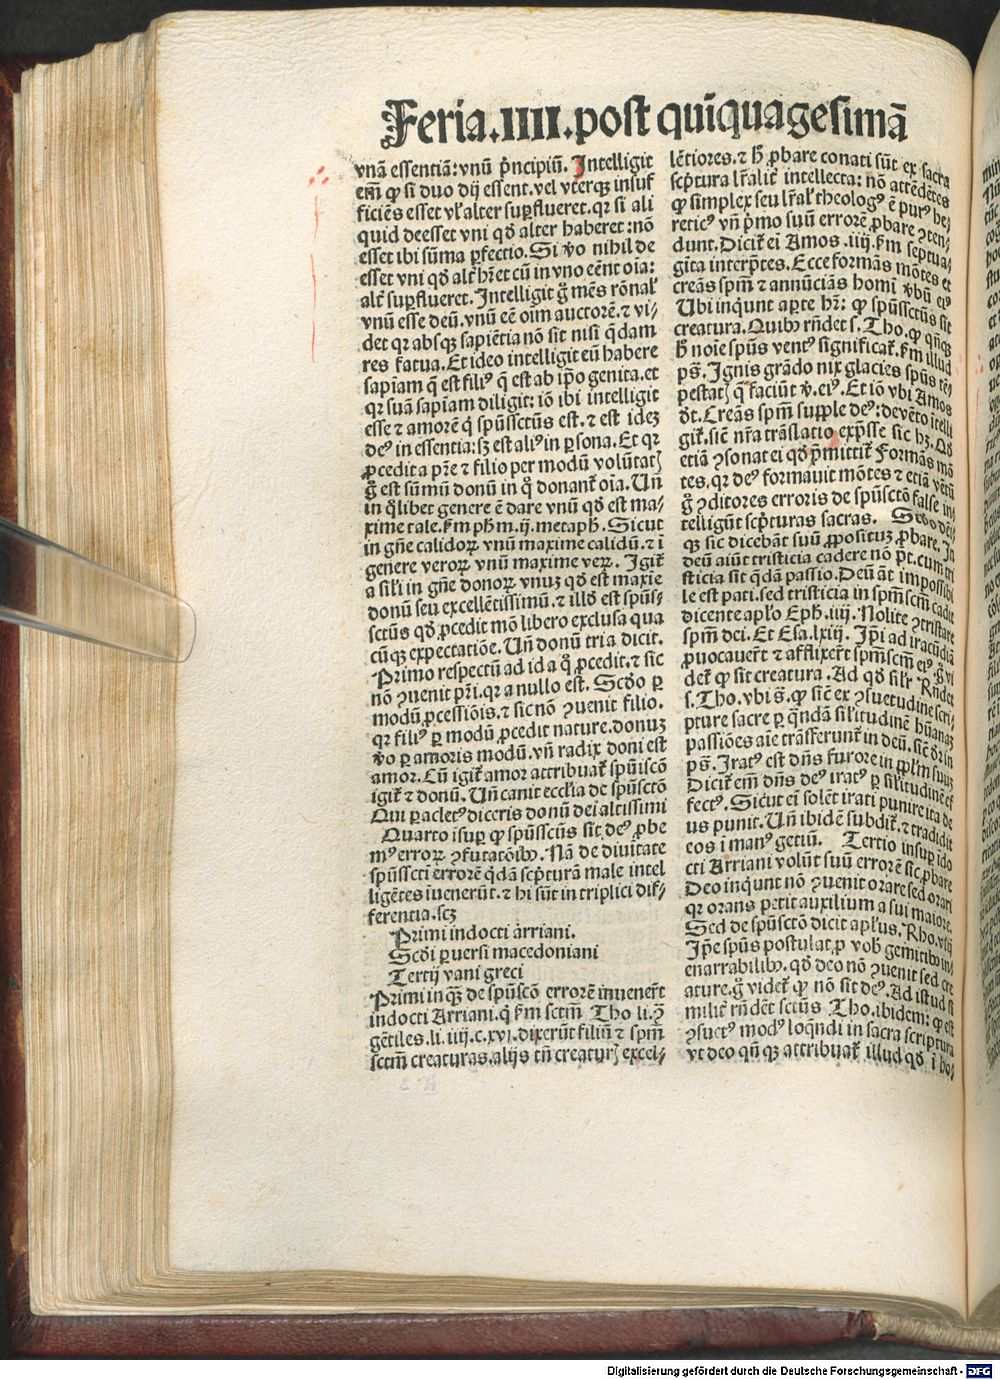 Feria.IIII.post quīquagesimā
vnā essentiā:vnū pͥncipiū. Intelligit
em̄ ꝙ si duo dij essent.vel vterqꝫ insuf
ficiēs esset vl̓ alter suꝑflueret.qr si ali
quid deesset vni qđ alter haberet:nō
esset ibi sūma ꝑfectio. Si v̓o nihil de
esset vni qđ alt̓ hr̄et cū in vno eēnt oīa:
alt̓ suꝑflueret. Intelligit g̊ mēs rōnal̓
vnū esse deū.vnū eē oim auctorē.⁊ vi⸗
det qr absqꝫ sapiētia nō sit nisi q̄dam
res fatua. Et ideo intelligit eū habere
sapīam q̄ est fili⁹ q̄ est ab ip̄o genita.et
qr suā sapīam diligit: iō ibi intelligit
esse ⁊ amorē qͥ spūssctūs est. ⁊ est idez
de⁹ in essentia:sꝫ est ali⁹ in ꝑsona. Et qr
ꝓcedit a pr̄e ⁊ filio per modū volūtatꝭ
g̊ est sūmū donū in q̊ donant̓ oīa. Uñ
in q̊libet genere ē dare vnū qđ est ma⸗
xime tale.ẜm ph̄m.ij.metaph̄. Sicut
in gn̄e calidoꝝ vnū maxime calidū.⁊ ī
genere veroꝝ vnū maxime veꝝ. Igit̓
a sil̓i in gn̄e donoꝝ vnuꝫ qđ est maxīe
donū seu excellētissimū.⁊ illđ est spūs⸗
sctūs qđ ꝓcedit mō libero exclusa qua
cūqꝫ expectatiōe. Uñ donū tria dicit.
Primo respectū ad id a q̊ ꝓcedit.⁊ sic
nō ꝯuenit pr̄i.qr a nullo est. Scđo ꝑ
modū ꝓcessiōis.⁊ sic nō ꝯuenit filio.
qr fili⁹ ꝑ modū ꝓcedit nature.donuꝫ
v̓o ꝑ amoris modū.vñ radix doni est
amor. Cū igit̓ amor attribuat̓ spūiscō
igit̓ ⁊ donū. Uñ canit eccl̓ia de spūsctō
Qui ꝑaclet⁹ diceris donū dei altissimi
Quarto īsuꝑ ꝙ spūsscūs sit de⁹ ꝓbe
m⁹ erroꝝ ꝯfutatōibꝰ. Nā de diuitate
spūsscti errorē q̄dā scp̄turā male intel
ligētes īuenerūt.⁊ hi sūt in triplici dif⸗
ferentia.scꝫ
Primi indocti arriani.
Scđi ꝑuersi macedoniani
Tertij vani greci
Primi inqꝫ de spūscō errorē inuenerūt
indocti Arriani.q̇ ẜm sctm̄ Tho li.ꝯ
gētiles.li.iiij.c.xvi.dixerūt filiū ⁊ spm̄
sctm̄ creaturas.alijs tn̄ creaturꝭ excel⸗
lētiores.⁊ h̄ ꝓbare conati sūt ex sacra
scp̄tura lr̄alit̓ intellecta: nō attēdētes
ꝙ simplex seu lr̄al̓ theolog⁹ ē pur⁹ he⸗
retic⁹ vñ pͥmo suū errorē ꝓbare ꝯten⸗
dunt. Dicit̓ eī Amos .iiij.ẜm septua⸗
gīta interp̄tes. Ecce formās mōtes et
creās spm̄ ⁊ annūciās homī v̓bū ei⁹
Ubi inqͥunt aꝑte hr̄: ꝙ spūssctūs sit
creatura. Quibꝰ rn̄det s. Tho. ꝙ qn̄qꝫ
h̄ noīe spūs vent⁹ significat̓.ẜm illud
pš. Ignis grādo nix glacies spūs tē⸗
pestatꝭ q̄ faciūt v̓. ei⁹. Et iō vbi Amos
đt. Creās spm̄ supple de⁹: devēto ītelli
git̓.sic̄ nr̄a trāslatio exp̄sse sic hꝫ. Qđ
etiā ꝯsonat ei qđ p̄mittit̓ Formās mō
tes.qr de⁹ formauit mōtes ⁊ etiā vētū
g̊ ꝯditores erroris de spūsctō false in⸗
telligūt scp̄turas sacras. Scđo dēi⸗
qꝫ sic dicebāt suū ꝓpositūꝫ ꝓbare. In
deū aiūt tristicia cadere nō pt̄.cum tri
sticia sit q̄dā passio. Deū āt impossibi
le est pati.sed tristicia in spm̄scm̄ cadit
dicente apl̓o Eph̄. iiij. Nolite ꝯtristare
spm̄ dei. Et Esa.lxiij. Ip̄i ad iracūdiā
ꝓuocauer̄t ⁊ afflixer̄t spm̄scm̄ ei⁹.g̊ vī
det̓ ꝙ sit creatura. Ad qđ sil̓r Rn̄det
s. Tho.vbi š.ꝙ sic̄ ex ꝯsuetudine scri⸗
pture sacre ꝑ q̄ndā sil̓itudinē hūanaꝫ
passiōes aīe trāsferunt̓ in deū.sic̄ đr in
pš. Irat⁹ est dn̄s furore in ppl̓m suuꝫ
Dicit̓ em̄ dn̄s de⁹ irat⁹ ꝑ sil̓itudinē ef
fect⁹. Sicut eī solēt irati punire ita de
us punit. Uñ ibidē subdit̓.⁊ tradidit
eos ī man⁹ gētiū. Tertio insuꝑ ido
cti Arriani volūt suū errorē sic ꝓbare
Deo inqͥunt nō ꝯuenit orare sed orari
qr orans petit auxilium a sui maiore.
Sed de spūsctō dicit apl̓us. Rho.viij
Ip̄e spūs postulat ꝓ vob̄ gemitibꝰ in⸗
enarrabilibꝰ.qđ deo nō ꝯuenit sed cre
ature.g̊ videt̓ ꝙ nō sit de⁹. Ad istud si
milit̓ rn̄dēt sctūs Tho.ibidem: ꝙ est
ꝯsuet⁹ mod⁹ loqͥndi in sacra scriptura
vt deo qn̄qꝫ attribuat̓ illud qđ ī ho⸗
Digitalisierung gefördert durch die Deutsche Forschungsgemeinschaft - DFG